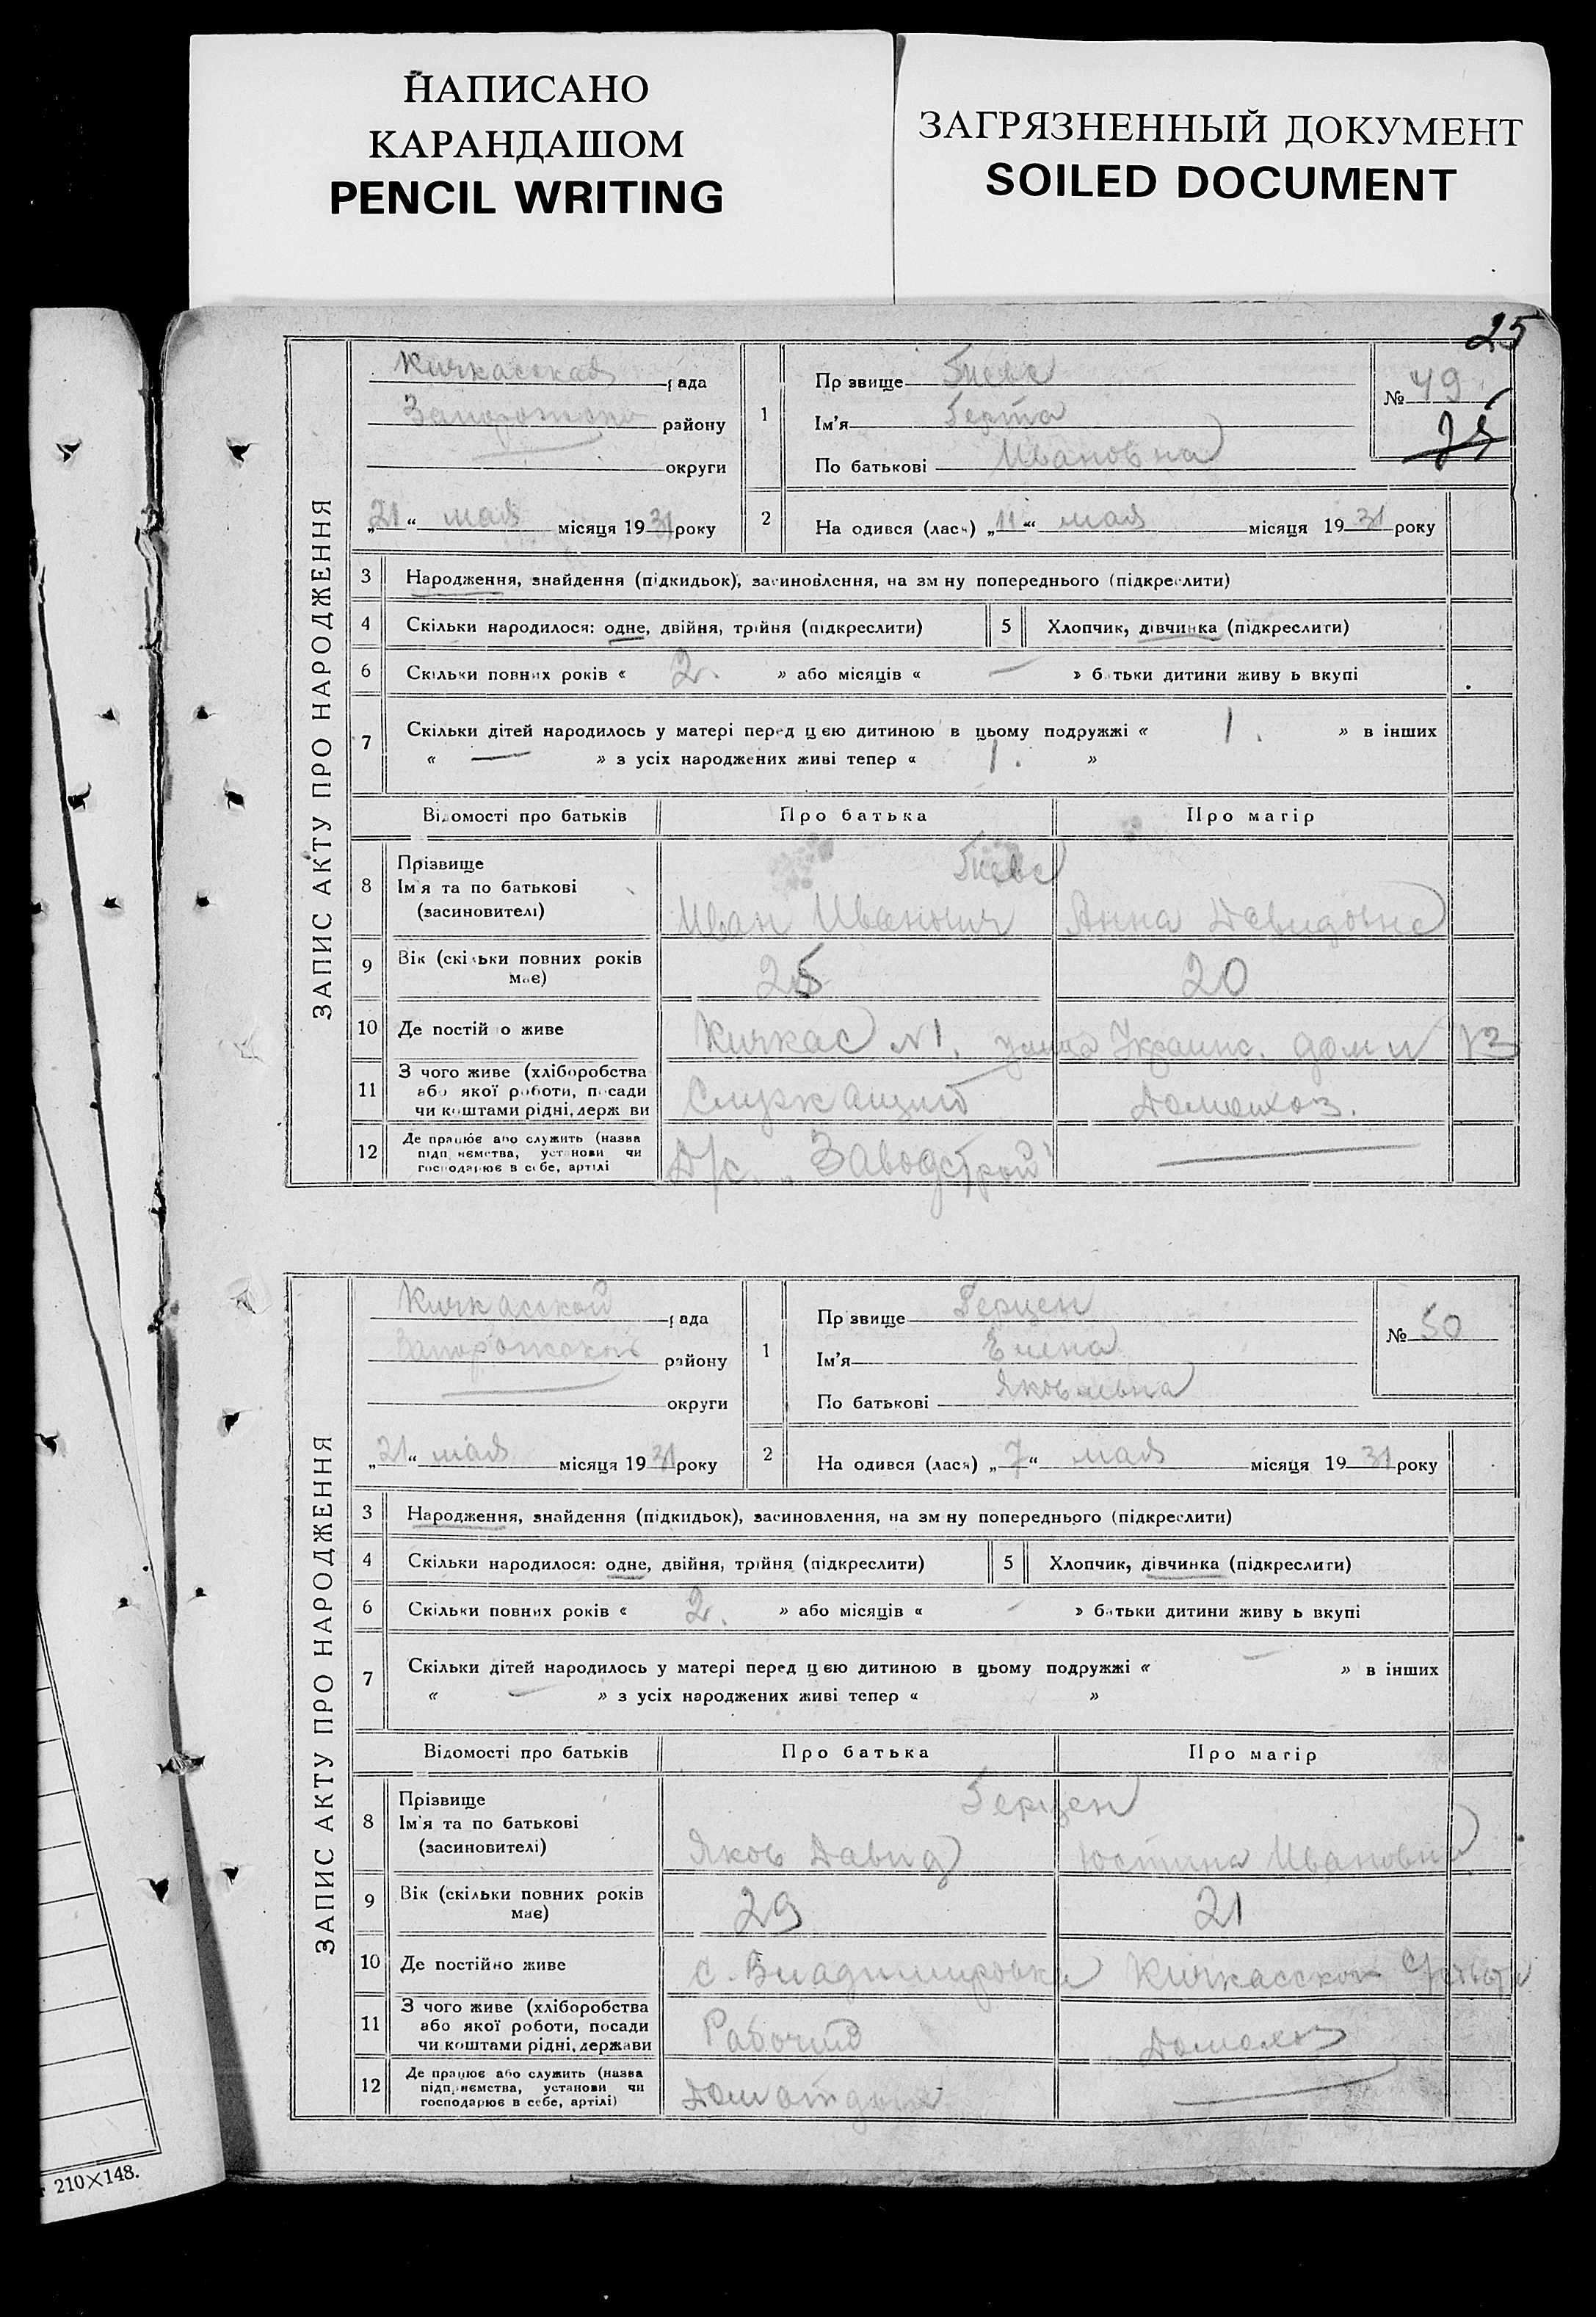 НАПИСАНО
КАРАНДАШОМ
PENCIL WRITING
ЗАГРЯЗНЕННЫЙ ДОКУМЕНТ
SOILED DOCUMENT
25
ЗАПИС АКТУ ПРО НАРОДЖЕННЯ
Кичкасская рада
району
округи
„21“ мая місяця 1931 року
1
Прізвище
Ім'я Герта
По батькові Ивановна
№ 49
2
На одився (лася) „11“ мая місяця 1931 року
3 Народження, знайдення (підкидьок), засиновлення, на зм ну попереднього (підкреслити)
4 Скільки народилося: одне, двійня, трійня (підкреслити) 5 Хлопчик, дівчинка (підкреслити)
6 Скільки повних років « 2. » або місяців « — » батьки дитини живу ь вкупі
7 Скільки дітей народилось у матері перед цею дитиною в цьому подружжі « 1. » в інших
« — » з усіх народжених живі тепер « 1. »
Відомості про батьків Про батька Про матір
8 Прізвище
Ім'я та по батькові
(засиновителі)
Иван Иванович Анна Давидовна
9 Вік (скільки повних років має) 25 20
10 Де постій о живе Кичкас №1, улица Украинс. дом №
11 З чого живе (хліборобства
або якої роботи, посади
чи коштами рідні, держ ви
Служащий Домохоз.
12 Де працює або служить (назва
підп иємства, установи чи
господарює в себе, артілі
Д/с. „Заводстрой“ —
ЗАПИС АКТУ ПРО НАРОДЖЕННЯ
Кичкасской рада
Запорожского району
округи
„21“ мая місяця 1931 року
1
Пр звище Герцен
Ім'я Елена
По батькові Яковлевна
№ 50
2
На одився (лася) „7“ мая місяця 1931 року
3 Народження, знайдення (підкидьок), засиновлення, на зм ну попереднього (підкреслити)
4 Скільки народилося: одне, двійня, трійня (підкреслити) 5 Хлопчик, дівчинка (підкреслити)
6 Скільки повних років « 2. » або місяців « — » батьки дитини живу ь вкупі
7 Скільки дітей народилось у матері перед цею дитиною в цьому подружжі « — » в інших
« — » з усіх народжених живі тепер « »
Відомості про батьків Про батька Про матір
8 Прізвище
Ім'я та по батькові
(засиновителі)
Герцен
Яков Давид Юстина Ивановна
9 Вік (скільки повних років має) 29 21
10 Де постійно живе с. Владимировка Кичкасской
11 З чого живе (хліборобства
або якої роботи, посади
чи коштами рідні, держави
Рабочий Домохоз
12 Де працює або служить (назва
підприємства, установи чи
господарює в себе, артілі)
—
210×148.